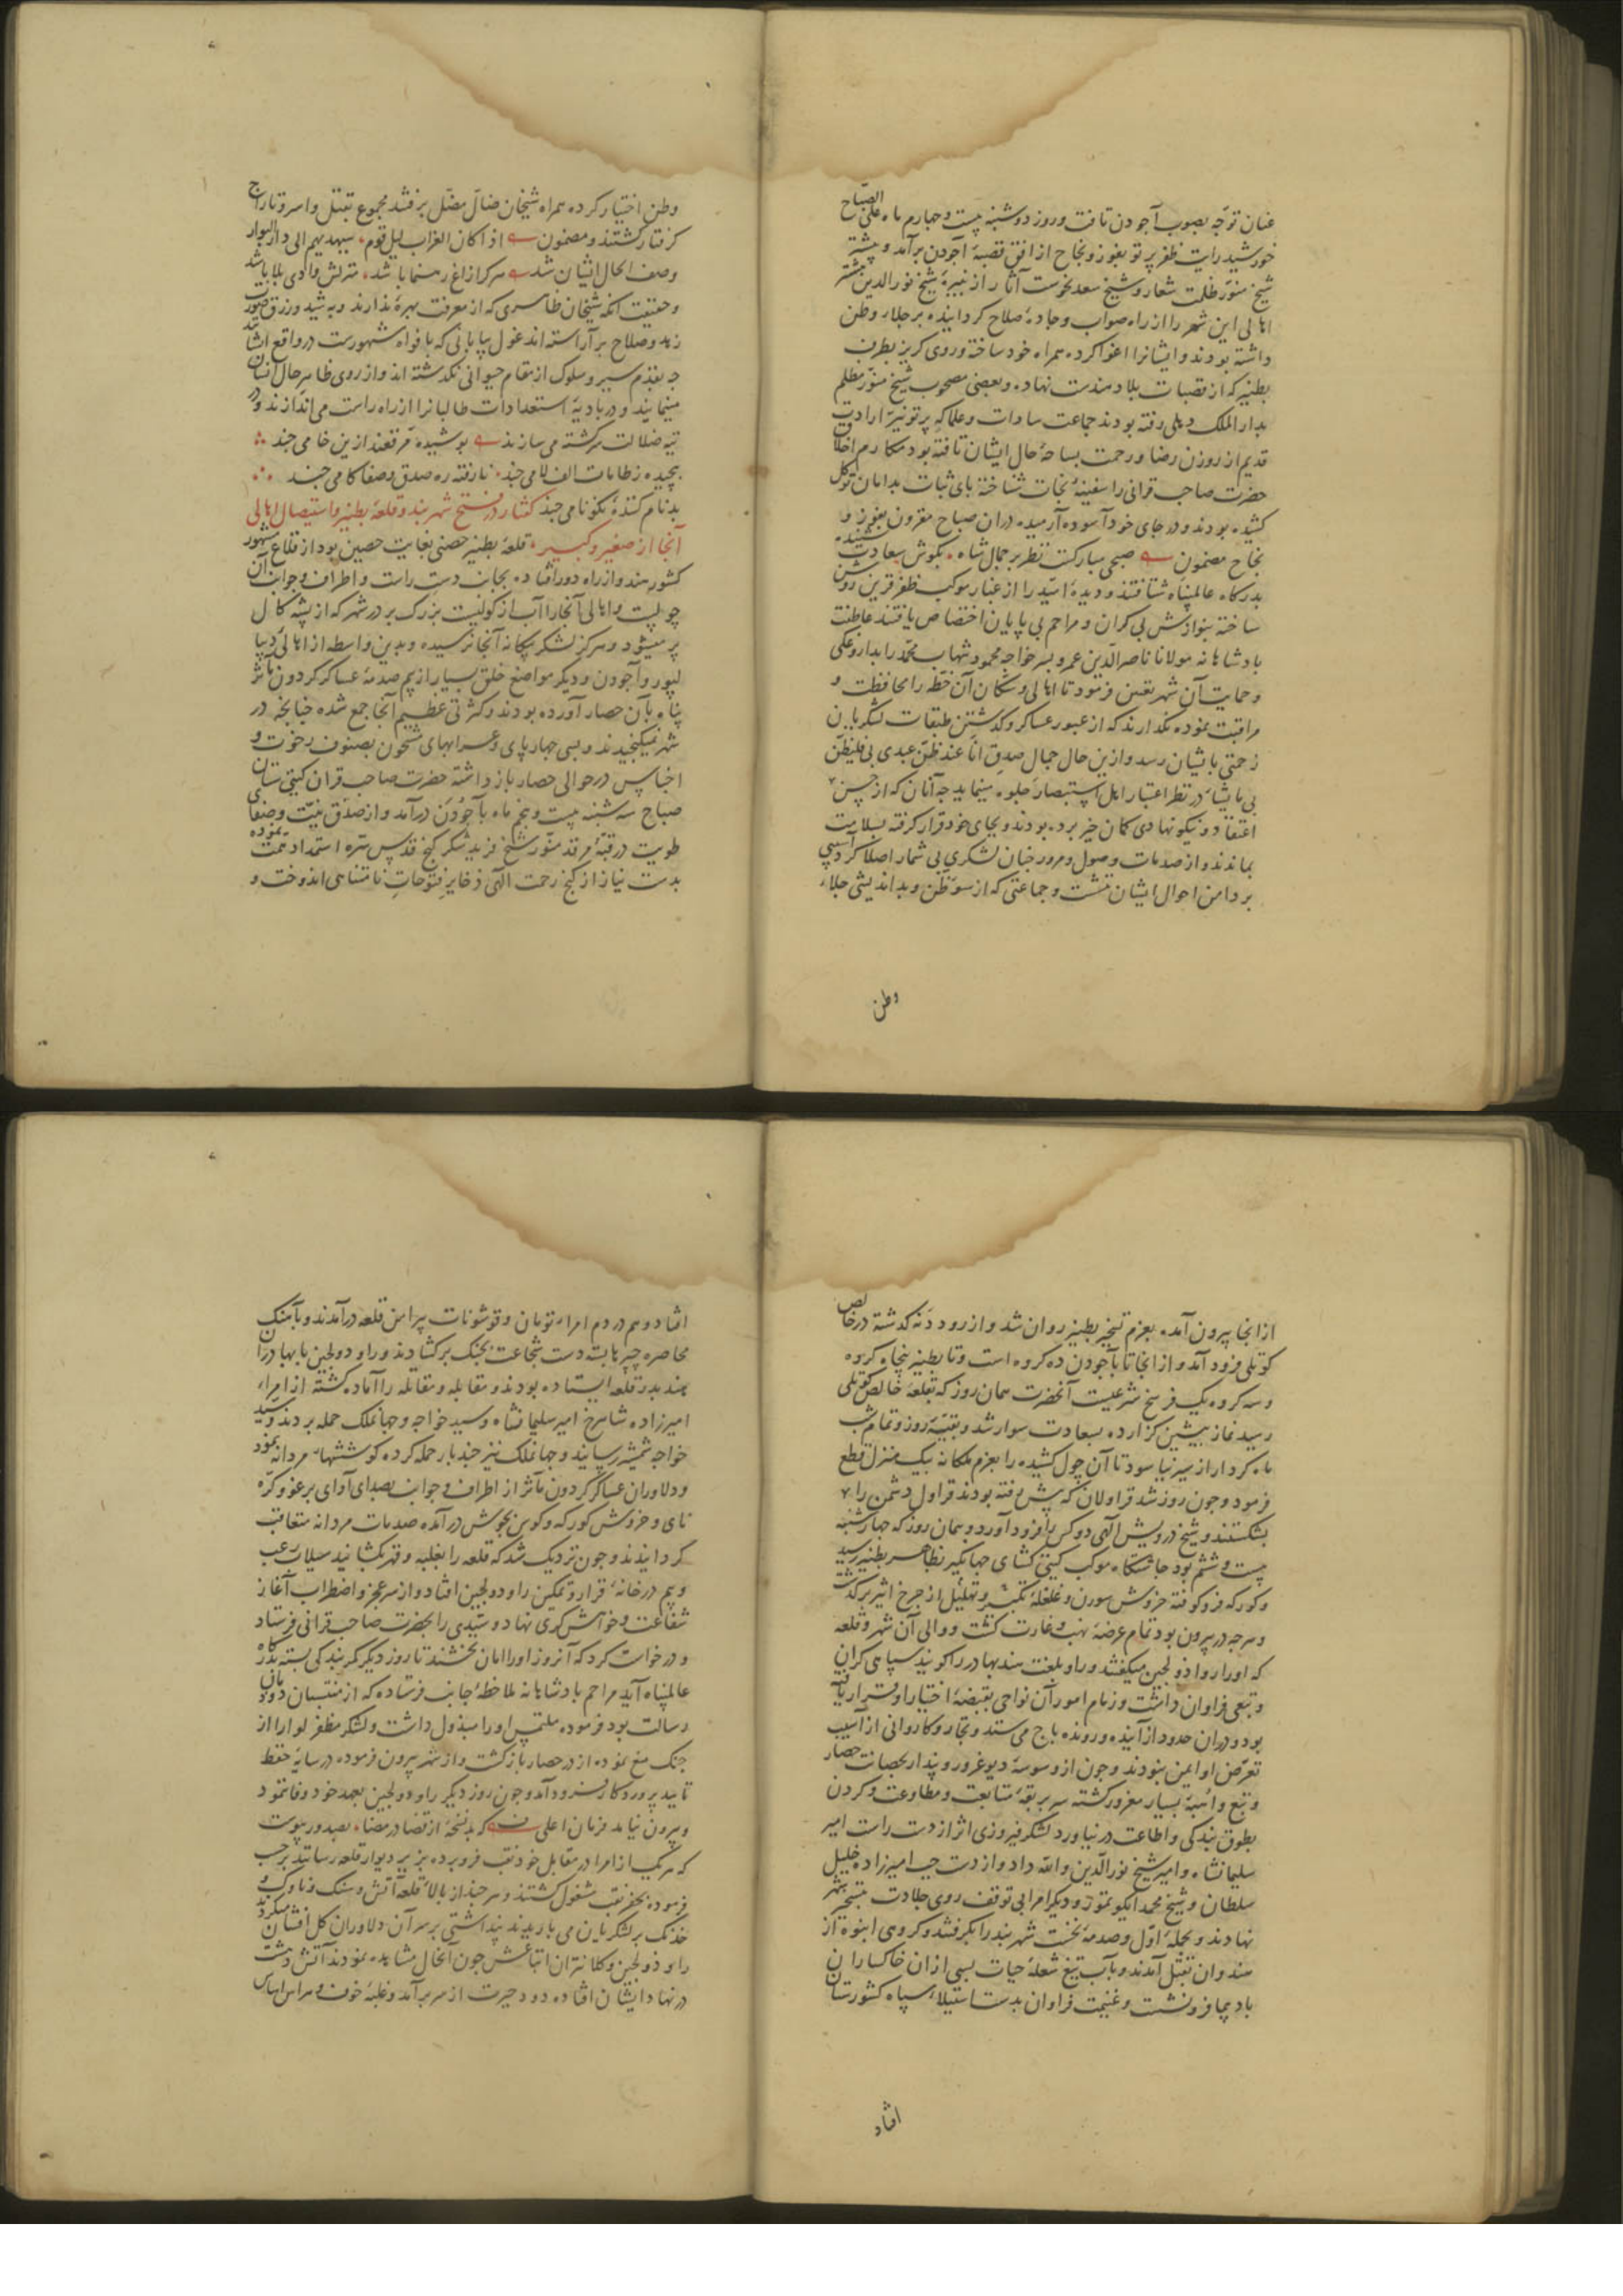 عنان توجّه بصوب آجودن تافت و روز دوشنبه بیست و چهارم ماه علی الصّباح
خورشید رایت ظفر پرتو بفوز و نجاح از افق قصبهٔ آجودن برآمد و پیشتر
شیخ منوّر ظلمت شعار و شیخ سعد نحوست آثار از نبیرهٔ شیخ نور الدین
اهالی این شهر را از راه صواب و جادهٔ صلاح کردانیده بر جلاء وطن
داشته بودند و ایشانرا اغوا کرده همراه خود ساخته و روی کریز بطرف
بطنیر که از قصبات بلاد هندست نهاده و بعضی مصحوب شیخ منوّر مظلم
بدار الملک دهلی رفته بودند جماعت سادات و علما که پرتو نیّر ارادت
قدیم از روزن رضا و رحمت بساحهٔ حال ایشان تافته بود مکارم اخلاق
حضرت صاحب قرانی را سفینهٔ نجات شناخته پای ثبات بدامان توکل
کشیده بودند و در جای خود آسوده آرمیده در ان صباح مقرون بفوز و
نجاح مضمون صبحی مبارکست نظر بر جمال شاه بکوش سعادت شنیده
بدرکاه عالمپناه شتافتند و دیدهٔ امّید را از غبار موکب ظفر قرین روشن
ساخته بنوازش بی کران و مراحم بی پایان اختصاص یافتند عاطفت
پادشاهانه مولانا ناصر الدّین عمر و پسر خواجه محمود شهاب محمّد را بداروغکی
و حمایت آن شهر تعیین فرمود تا اهالی و سکان آن خطه را محافظت و
مراقبت نموده نکذارند که از عبور عساکر و کذشتن طبقات لشکریان
زحمتی بایشان رسد و ازین حال جمال صدق انا عند ظنّ عبدی بی فلیظنّ
بی ما یشاء در نظر اعتبار اهل استبصار جلوه مینماید چه آنان که از حسن
اعتقاد و نیکونهادی کمان خیر برده بودند و بجای خود قرار کرفته بسلامت
بماندند و از صدمات وصول و مرور چنان لشکری بی شمار اصلا کرد آسیبی
بر دامن احوال ایشان ننشست و جماعتی که از سوء ظن و بد اندیشی جلاء
وطن
وطن اختیار کرده همراه شیخان ضالّ مضلّ برفتند مجموع بقتل و اسر و تاراج
کرفتار کشتند و مضمون اذا کان الغراب دلیل قوم سیهدیهم الی دار البوار
وصف الحال ایشان شد هر کرا زاغ رهنما باشد منزلش وادی بلا باشد
و حقیقت آنکه شیخان ظاهری که از معرفت بهرهٔ ندارند و به شید و زرق صورت
زهد و صلاح برآراسته اند غول بیابانی که بافواه مشهورست در واقع ایشانند
چه بقدم سیر و سلوک از مقام حیوانی نکذشته اند و از روی ظاهر حال انسان
مینمایند و در بادیهٔ استعدادات طالبانرا از راه راست می اندازند و در
تیه ضلالت سرکشته می سازند پوشیده مرقعند ازین خامی چند
پیچیده ز طامات الف لامی چند نارفته ره صدق و صفا کامی چند
بدنام کنندهٔ نکونامی چند کفتار در فتح شهربند و قلعهٔ بطنیر و استیصال اهالی
آنجا از صغیر و کبیر قلعهٔ بطنیر حصنی بغایت حصین بود از قلاع مشهور
کشور هند و از راه دور افتاده بجانب دست راست و اطراف و جوانب آن
چولست و اهالی آنجا را آب از کولیست بزرک بر در شهر که از پشه کال
پر میشود و هرکز لشکر بیکانه آنجا نرسیده و بدین واسطه از اهالی دیبا
لپور و آجودن و دیکر مواضع خلق بسیار از بیم صدمهٔ عساکر کردون مآثر
پناه بآن حصار آورده بودند و کثرتی عظیم آنجا جمع شده چنانچه در
شهر نمیکنجیدند و بسی چهارپای و عرابهای مشحون بصنوف رخوت و
اجناس در حوالی حصار بازداشته حضرت صاحب قران کیتی ستان
صباح سه شنبه بیست و پنجم ماه بآجودن درآمد و از صدق نیّت و صفای
طویت در قبّهٔ مرقد منوّر شیخ فرید شکر کنج قدّس سرّه استمداد همّت نموده
بدست نیاز از کنج رحمت الهی ذخایر فتوحات نامتناهی اندوخت و
از انجا بیرون آمده بعزم تسخیر بطنیر روان شد و از رود دنه کذشته در خالص
کوتلی فرود آمد و از انجا تا بآجودن ده کروه است و تا بطنیر پنجاه کروه
و سه کروه یک فرسخ شرعیست آنحضرت همان روز که بقلعهٔ خالص کوتلی
رسید نماز پیشین کزارده بسعادت سوار شد و بقیّهٔ روز و تمام شب
ماه کردار از سیر نیاسود تا آن چول کشیده را بعزم ملکانه بیک منزل قطع
فرمود و چون روز شد قراولان که پیش رفته بودند قراول دشمن را
بشکستند و شیخ درویش الهی دو کس را فرود آورد و همان روز که چهارشنبه
بیست و ششم بود چاشتکاه موکب کیتی کشای جهانکیر بظاهر بطنیر رسید
و کورکه فروکوفته خروش سورن و غلغلهٔ تکبیر و تهلیل از چرخ اثیر برکذشت
و هرچه در بیرون بود تمام عرضهٔ نهب و غارت کشت و والی آن شهر و قلعه
که او را راو دولجین میکفتند و راو بلغت هند بهادر را کویند سپاهی کران
و تبعی فراوان داشت و زمام امور آن نواحی بقبضهٔ اختیار او قرار یافته
بود و در ان حدود از آینده و رونده باج می ستد و تجار و کاروانی از آسیب
تعرّض او ایمن نبودند و چون از وسوسهٔ دیو غرور و پندار بحصانت حصار
و تبع و اهبهٔ بسیار مغرور کشته سر بربقهٔ متابعت و مطاوعت و کردن
بطوق بندکی و اطاعت در نیاورد لشکر فیروزی اثر از دست راست امیر
سلیمانشاه و امیر شیخ نور الدّین و الله داد و از دست چپ امیرزاده خلیل
سلطان و شیخ محمد ایکو تمور و دیکر امرا بی توقف روی جلادت بتسخیر شهر
نهادند و بحملهٔ اوّل و صدمهٔ نخست شهربند را بکرفتند و کروهی انبوه از
هندوان بقتل آمدند و بآب تیغ شعلهٔ حیات بسی از ان خاکساران
بادپیما فرونشست و غنیمت فراوان بدست استیلاء سپاه کشورستان
افتاد
افتاد و هم در دم امراء تومان و قوشونات پیرامن قلعه درآمدند و بآهنک
محاصره چپر بسته دست شجاعت بجنک برکشادند و راو دولجین با بهادران
هند بدر قلعه ایستاده بودند و مقابله و مقاتله را آماده کشته از امراء
امیرزاده شاهرخ امیر سلیمانشاه و سید خواجه و جهانملک حمله بردند و سید
خواجه شمشیر رسانید و جهانملک نیز چند بار حمله کرده کوششهاء مردانه نمود
و دلاوران عساکر کردون مآثر از اطراف و جوانب بصدای آوای برغو و کرّه
نای و خروش کورکه و کوس بجوش درآمده صدمات مردانه متعاقب
کردانیدند و چون نزدیک شد که قلعه را بغلبه و قهر بکشانید سیلاب رعب
و بیم در خانهٔ قرار و تمکین راو دولجین افتاد و از سر عجز و اضطراب آغاز
شفاعت و خواهش کری نهاد و سیّدی را بحضرت صاحب قرانی فرستاد
و درخواست کرد که آنروز او را امان بخشند تا روز دیکر کمر بندکی بسته بدرکاه
عالمپناه آید مراحم پادشاهانه ملاحظهٔ جانب فرستاده که از منتسبان دودمان
رسالت بود فرموده ملتمس او را مبذول داشت و لشکر مظفر لوا را از
جنک منع نموده از در حصار بازکشت و از شهر بیرون فرموده در سایهٔ حفظ
تایید پروردکار فرود آمد و چون روز دیکر راو دولجین بعهد خود وفا ننمود
و بیرون نیامد فرمان اعلی که بد نسخهٔ از قضا در مضا بصدور پیوست
که هر یک از امرا در مقابل خود نقب فرو برده بزیر دیوار قلعه رسانند بر حسب
فرموده بحفر نقب مشغول کشتند و هرچند از بالاء قلعه آتش و سنک و ناوک و
خدنک بر لشکریان می باریدند پنداشتی بر سر آن دلاوران کل افشان میکردند
راو دولجین و کلانتران اتباعش چون آنحال مشاهده نمودند آتش دهشت
در نهاد ایشان افتاده دود حیرت از سر برآمد و غلبهٔ خوف و هراس اساس